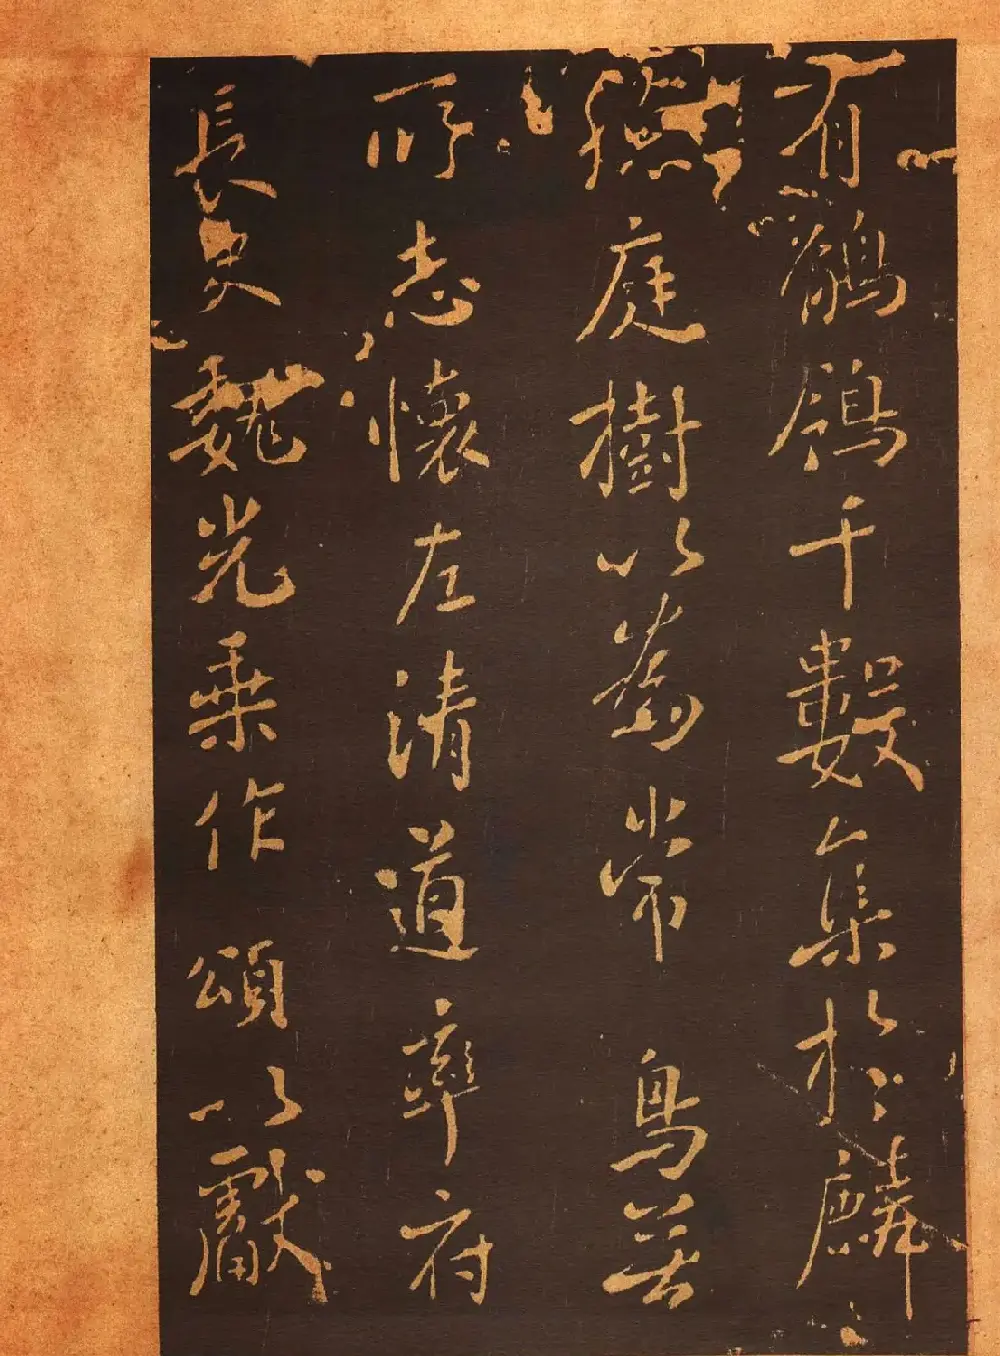 有鶺鴒千數集於麟
德庭樹以為常鳥無
所志懷左清道率府
長史魏光乘作頌以獻